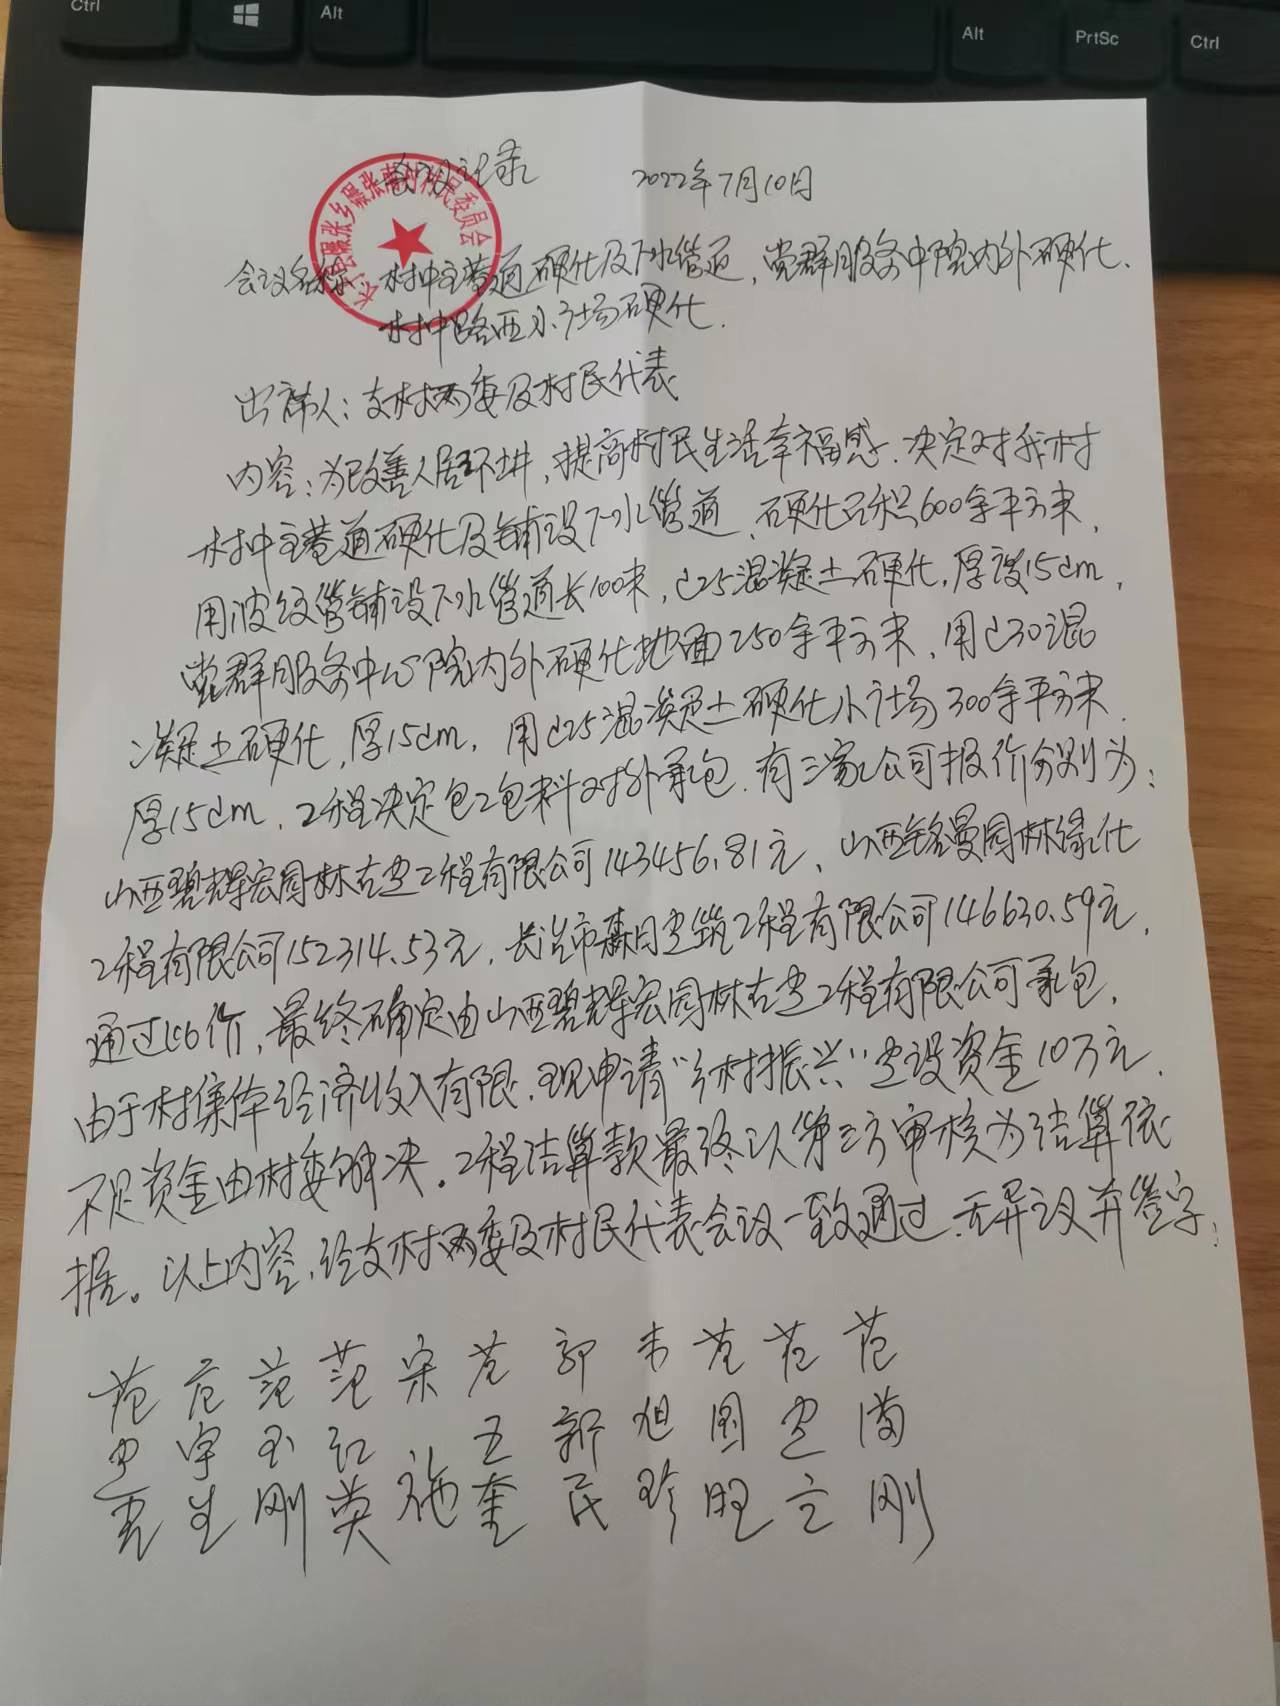 Ctrl
Alt
Alt
PrtSc
Ctrl
会议记录 2022年7月10日
会议名称: 村中主巷道硬化及下水管道,党群服务中院内外硬化、
村中路西小广场硬化.
出席人:支村两委及村民代表
内容:为改善人居环境,提高村民生活幸福感.决定对我村
村中主巷道硬化及铺设下水管道、硬化面积600余平方米,
用波纹管铺设下水管道长100米,C25混凝土硬化,厚度15cm,
党群服务中心院内外硬化地面250余平方米,用C30混
凝土硬化,厚15cm,用C25混凝土硬化小广场300余平方米.
厚15cm,工程决定包工包料对外承包.有三家公司报价分别为:
山西碧辉宏园林古建工程有限公司143456.81元、山西铭曼园林绿化
工程有限公司152314.53元,长治市森月建筑工程有限公司146630.59元,
通过比价,最终确定由山西碧辉宏园林古建工程有限公司承包.
由于村集体经济收入有限.现申请“乡村振兴”建设资金10万元.
不足资金由村委解决。工程结算款最终以第三方审核为结算依
据。以上内容,经支村两委及村民代表会议一致通过.无异议并签字:
范 范 范 范 宋 范 郭 韦 范 范 范
宇 玉 红 王 新 旭 国 建 满
生 刚 英 施 奎 民 珍 旺 立 刚